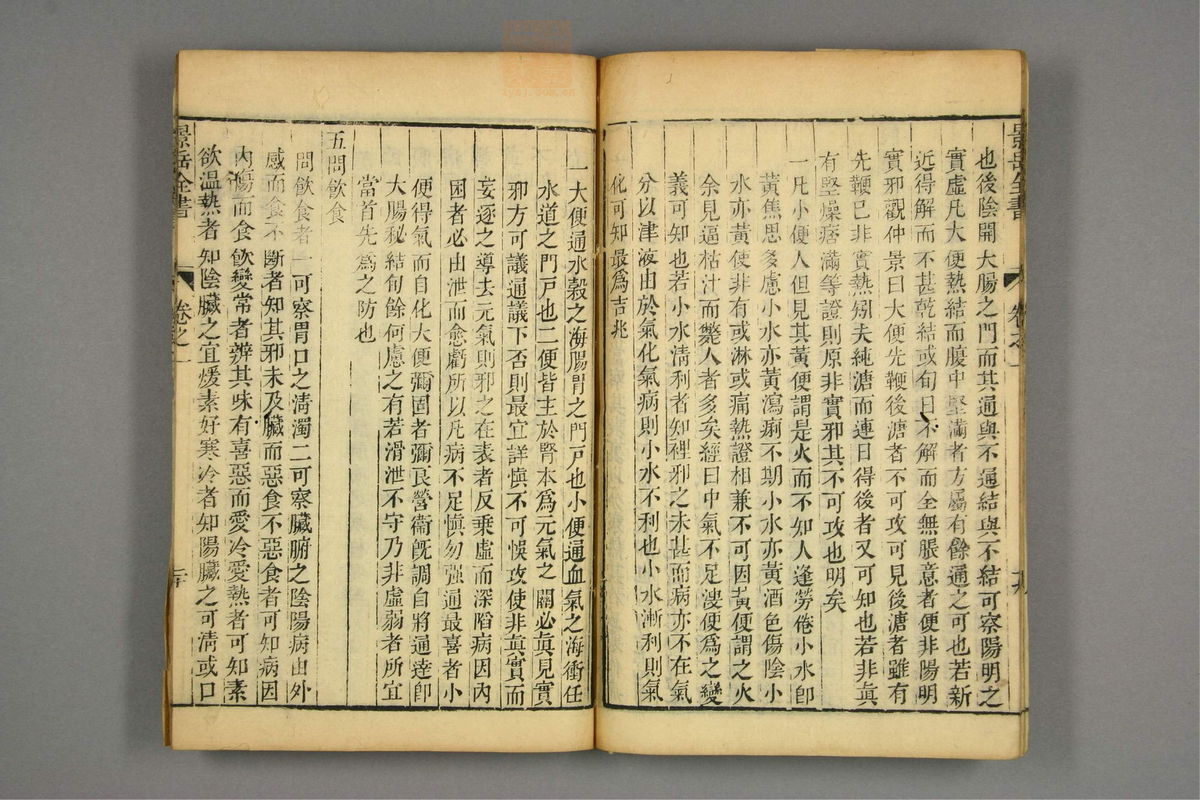 景岳全書
卷之一
十九
也後陰開大腸之門而其通與不通結與不結可察陽明之
實虛凡大便熱結而腹中堅滿者方屬有餘通之可也若新
近得解而不甚乾結或旬日不解而全無脹意者便非陽明
實邪觀仲景曰大便先鞕後溏者不可攻可見後溏者雖有
先鞕已非實熱矧夫純溏而連日得後者又可知也若非真
有堅燥痞滿等證則原非實邪其不可攻也明矣
一凡小便人但見其黃便謂是火而不知人逢勞倦小水卽
黃焦思多慮小水亦黃瀉痢不期小水亦黃酒色傷陰小
水亦黃使非有或淋或痛熱證相兼不可因黃便謂之火
余見逼枯汁而斃人者多矣經曰中氣不足溲便爲之變
義可知也若小水清利者知裡邪之未甚而病亦不在氣
分以津液由於氣化氣病則小水不利也小水漸利則氣
化可知最爲吉兆
一大便通水穀之海腸胃之門戸也小便通血氣之海衝任
水道之門戸也二便皆主於腎本爲元氣之關必真見實
邪方可議通議下否則最宜詳慎不可悞攻使非真實而
妄逐之導去元氣則邪之在表者反乗虛而深陷病因內
困者必由泄而愈虧所以凡病不足慎勿强通最喜者小
便得氣而自化大便彌固者彌良營衞旣調自將通達卽
大腸秘結旬餘何慮之有若滑泄不守乃非虛弱者所宜
當首先爲之防也
五問飲食
問飲食者一可察胃口之清濁二可察臟腑之陰陽病由外
感而食不斷者知其邪未及臟而惡食不惡食者可知病因
內傷而食飲變常者辨其味有喜惡而愛冷愛熱者可知素
欲溫熱者知陰臟之宜煖素好寒冷者知陽臟之可清或口
景岳全書
卷之一
二十